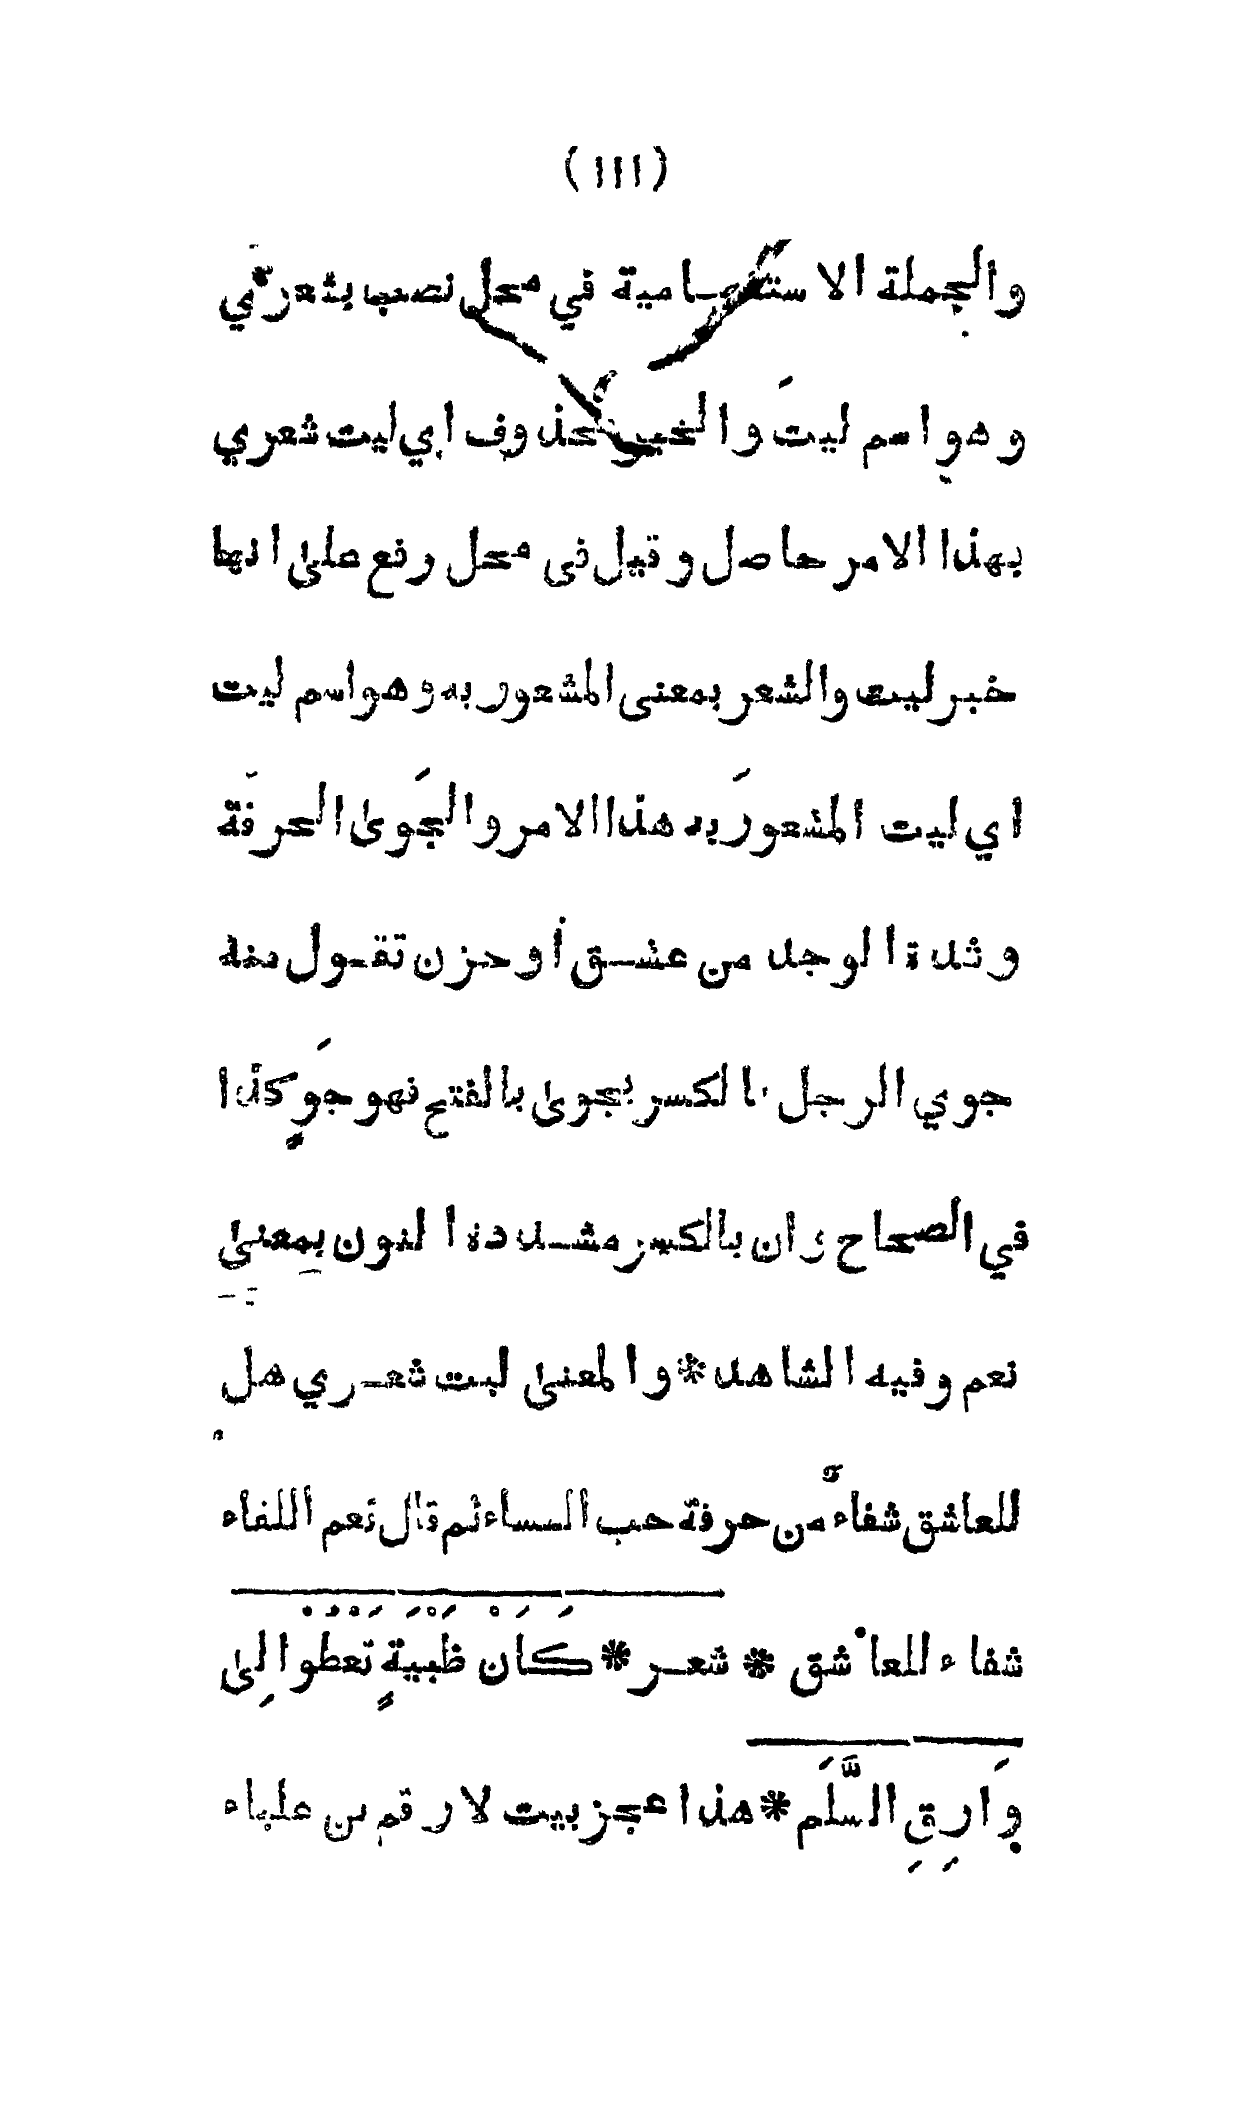 (١١١)
والجملة الاستفهامية في محل نصب بشعري
وهو اسم ليتَ والخبر محذوف اي ليت شعري
بهذا الامر حاصل وقيل فى محل رفع على انها
خبر ليت والشعر بمعنى المشعور به وهو اسم ليت
اي ليت المشعورَ به هذا الامر والجَوى الحرقة
وشدة الوجد من عشق أو حزن تقول منه
جوي الرجل بالكسر يجوى بالفتح فهو جَوٍ كذا
في الصحاح وان بالكسر مشددة النون بمعنى
نعم وفيه الشاهد * والمعنى ليت شعري هل
للعاشق شفاءٌ من حرقة حب النساء ثم قال نعم اللقاء
شفاء للعاشق * شعر * كَأَنْ ظَبْيَةٍ تَعْطُوْ اِلى
وَارِقِ السَّلَم * هذا عجز بيت لارقم بن علباء